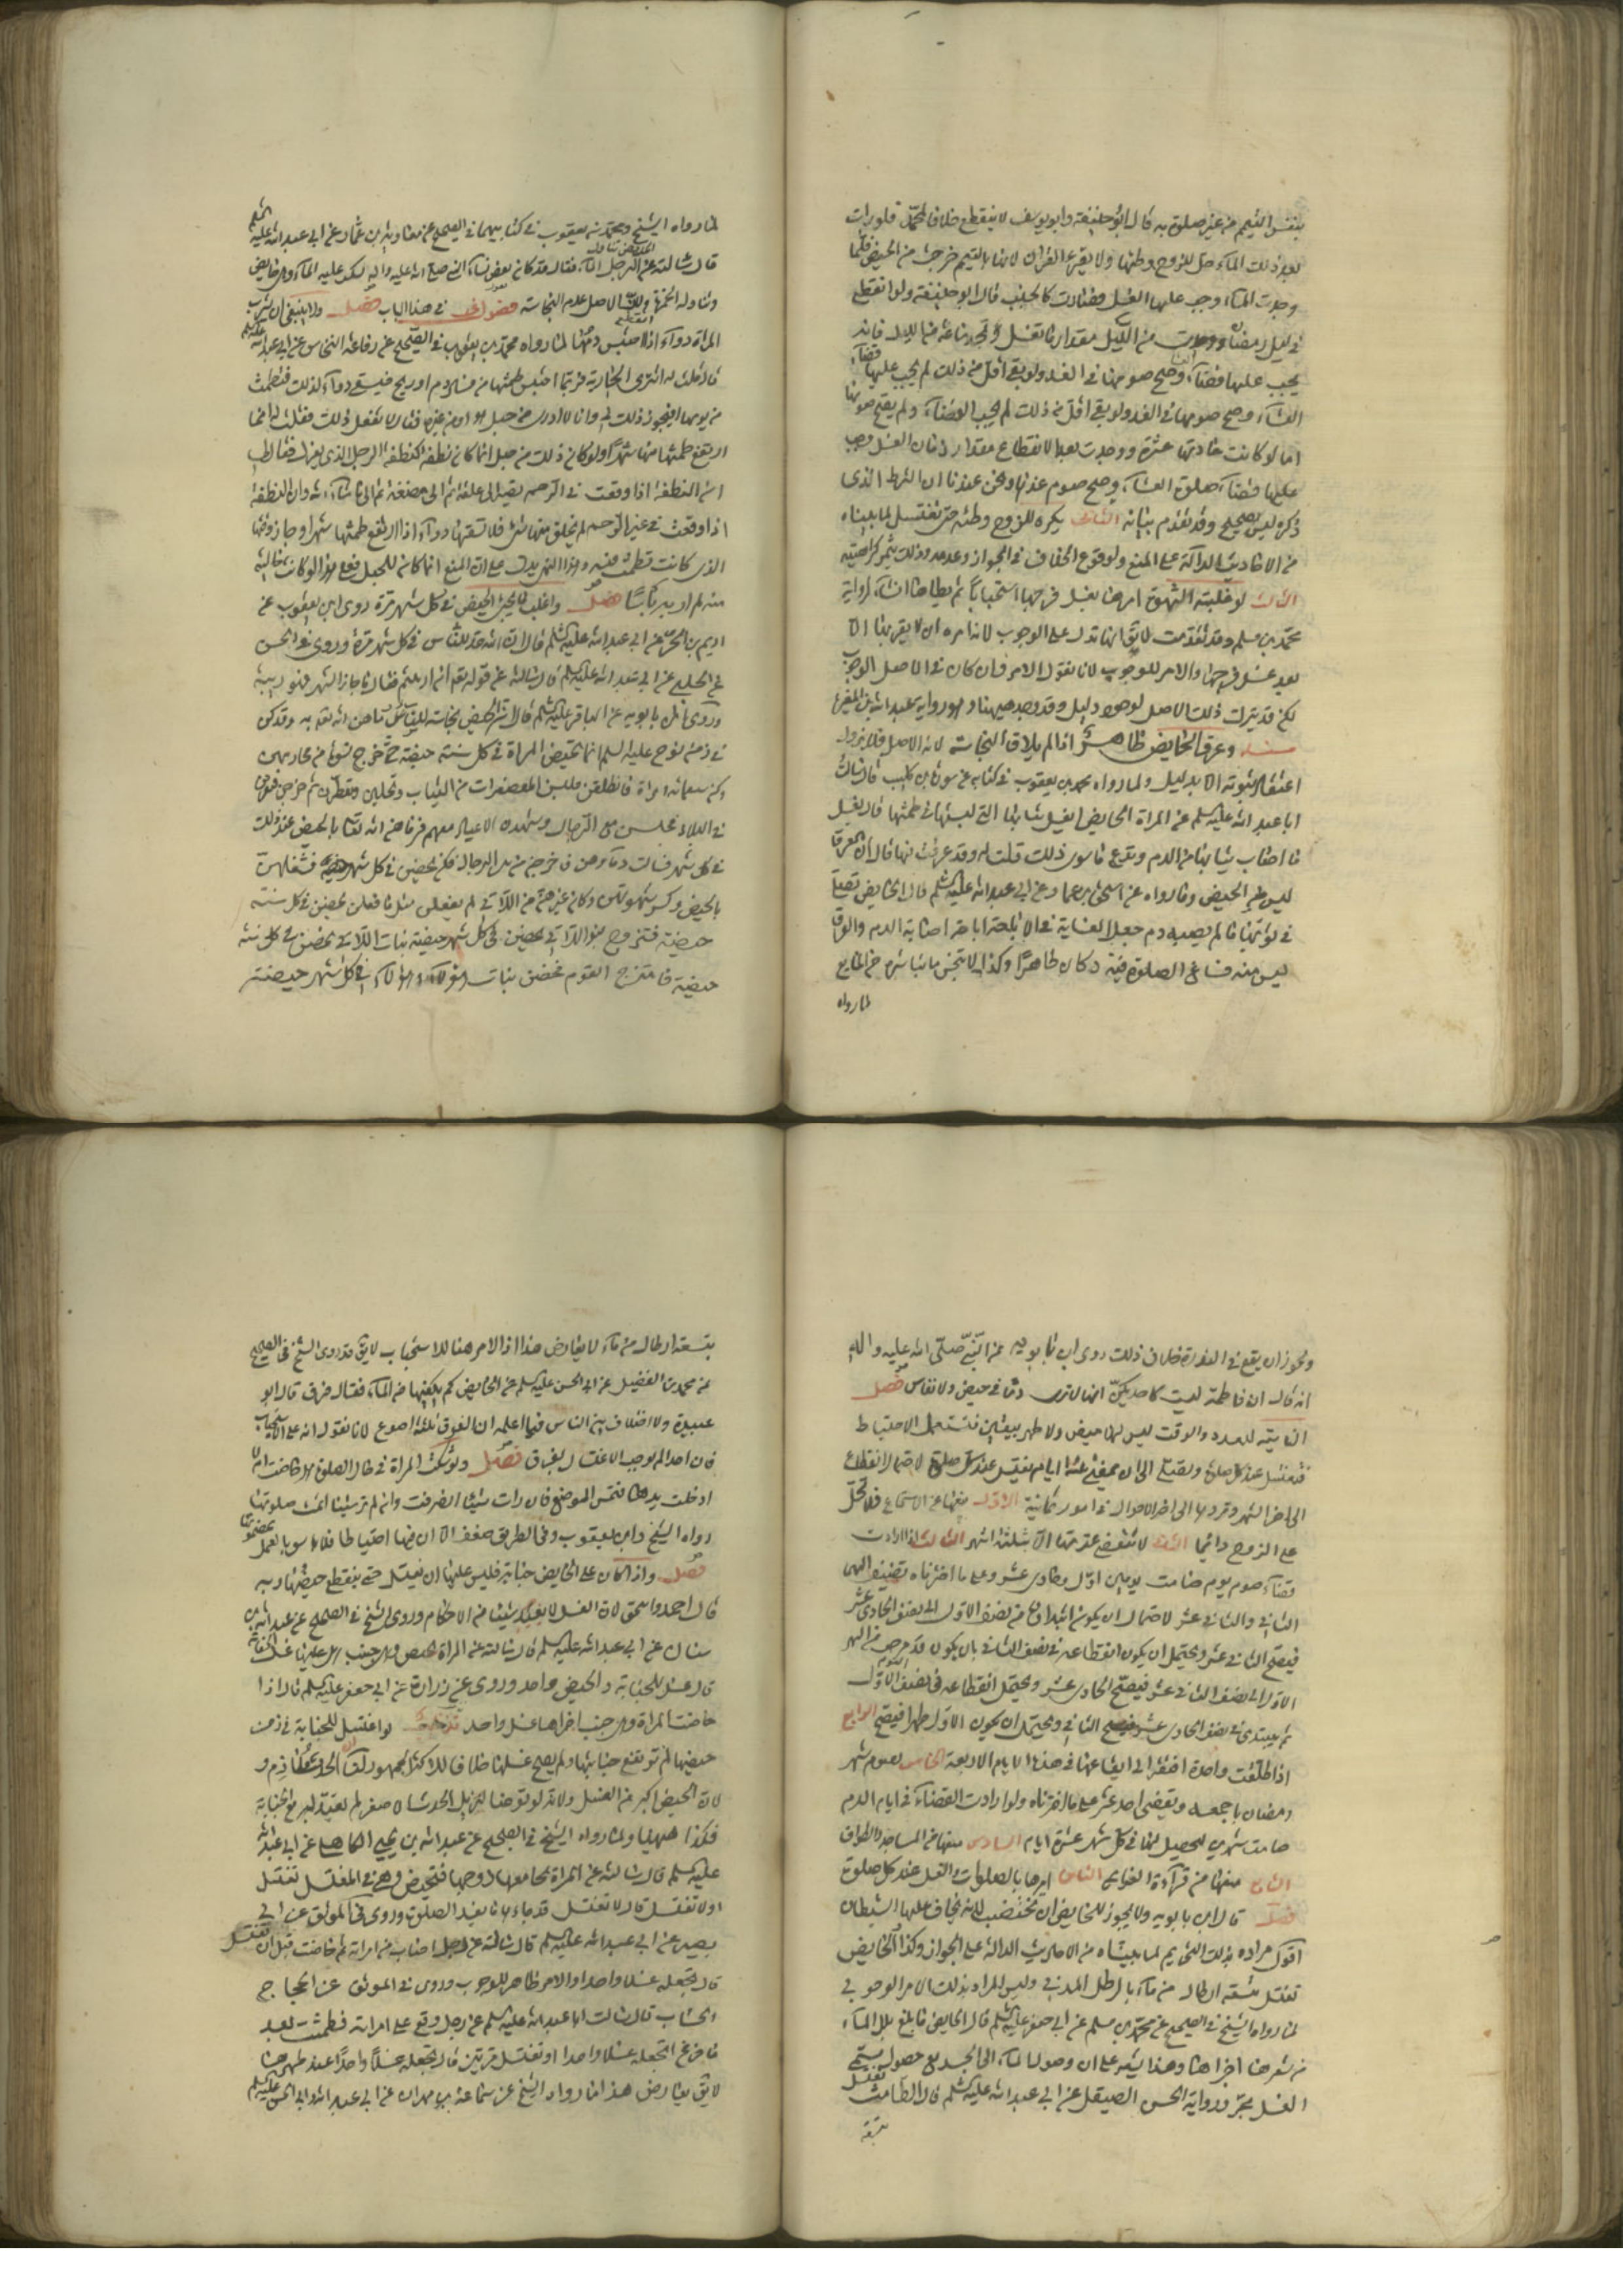 بنفس التيمم من غير صلوة به قال ابو حنيفة وابو يوسف لا ينقطع خلافا لمحمد فلو رات
بعد ذلك الماء حل للزوج وطئها ولا يقرء القران لانها بالتيمم خرجت من الحيض فلما
وجدت الماء وجب عليها الغسل فصارت كالجنب قال ابو حنيفة ولو انقطع
في ليل رمضان ووجدت من الليل مقدار ما تغتسل و ساعة من الليل فانه
يجب عليها قضاء وصح صومها في الغد ولو بقي اقل من ذلك لم يجب عليها قضاء
العشاء وصح صومها في الغد ولو بقي اقل من ذلك لم يجب القضاء ولم يصح صومها
اما لو كانت عادتها عشرة ووجدت بعد الانقطاع مقدار زمان الغسل وجب
عليها قضاء صلوة العشاء وصح صوم غدها ونحن عندنا ان الشرط الذي
ذكره ليس بصحيح وقد تقدم بيانه الثاني يكره للزوج وطئه حتى تغتسل لما بيناه
من الاحاديث الدالة على المنع ولوقوع الخلاف في الجواز وعدمه وذلك يثمر كراهيته
الثالث لو غلبته الشهوة امرها بغسل فرجها استحبابا ثم يطاها ان شاء لرواية
محمد بن مسلم وقد تقدمت لا يق انها تدل على الوجوب لانه امره ان لا يقربها الا
بعد غسل فرجها والامر للوجوب لانا نقول الامر وان كان في الاصل الوجوب
لكن قد يترك ذلك الاصل لوجود دليل وقد وجد هيهنا وهو رواية عبد الله بن المغيرة
مسئلة وعرق الحايض طاهر اذا لم يلاق النجاسة لانه الاصل فلا يزول
اعتقاد ثبوته الا بدليل ولما رواه محمد بن يعقوب في كتابه عن سورة بن كليب قال سالت
ابا عبد الله عليه السلم عن المراة الحايض اتغسل ثيابها التي لبستها في طمثها قال تغسل
ما اصاب ثيابها من الدم وتدع ما سوى ذلك قلت له وقد عرقت فيها قال ان العرق
ليس من الحيض وما رواه عن اسحق بن عمار عن ابي عبد الله عليه السلم قال الحايض تصلي
في ثوبها ما لم يصبه دم جعل الغاية في الاباحة اصابة الدم والعرق
ليس منه فساغ الصلوة فيه وكان طاهرا وكذا لا تنجس ما تباشره من المايع
لما رواه
لما رواه الشيخ ومحمد بن يعقوب في كتابيهما في الصحيح عن معاوية بن عمار عن ابي عبد الله عليه السلم
قال سالته عن الحايض تناول الرجل الماء فقال قد كان بعض نساء النبي صلى الله عليه واله تسكب عليه الماء وهي حايض
وتناوله الخمرة ولان الاصل عدم النجاسة فصول اخر في هذا الباب فصل ولا ينبغي ان تشرب
المراة دواء اذا احتبس دمها لما رواه محمد بن يعقوب في الصحيح عن رفاعة النخاس عن ابي عبد الله عليه السلم
قال قلت له اشتري الجارية فربما احتبس طمثها من فساد دم او ريح فيسقى دواء لذلك فتطمث
من يومها افيجوز ذلك لي وانا لا ادري من حبل هو او من غيره فقال لا تفعل ذلك فقلت له انما
ارتفع طمثها منها شهرا ولو كان ذلك من حبل انما كان نطفة كنطفة الرجل الذي يعزل فقال لي
ان النطفة اذا وقعت في الرحم تصير الى علقة ثم الى مضغة ثم الى ما شاء الله وان النطفة
اذا وقعت في غير الرحم لم يخلق منها شئ فلا تسقها دواء اذا ارتفع طمثها شهرا وجاز وقتها
الذي كانت تطمث فيه وهذا الحديث يدل على ان المنع انما كان للحبل فعلى هذا لو كانت خالية
منه لم ار به باسا فصل واغلب ما يجئ الحيض في كل شهر مرة روى ابن يعقوب عن
اديم بن الحر عن ابي عبد الله عليه السلم قال ان الله حد للنساء في كل شهر مرة وروى في الحسن
عن الحلبي عن ابي عبد الله عليه السلم قال سالته عن قوله تعالى ان ارتبتم فقال ما جاز الشهر فهو ريبة
وروى ابن بابويه عن الباقر عليه السلم قال ان الحيض نجاسة للنساء رماهن الله به وقد كن
في زمن نوح عليه السلم انما تحيض المراة في كل سنة حيضة حتى خرج نسوة من مجاريهن
وكن سبعمائة امراة فانطلقن فلبسن المعصفرات من الثياب وتحلين وتعطرن ثم خرجن فتفرقن
في البلاد فجلسن مع الرجال وشهدن الاعياد معهم فرماهن الله تعالى بالحيض عند ذلك
في كل شهر فسالت دماؤهن فاخرجن من بين الرجال فكن يحضن في كل شهر حيضة فشغلهن
بالحيض وكسر شهوتهن وكان غيرهن من اللاتي لم يفعلن مثل ما فعلن يحضن في كل سنة
حيضة فتزوج بنو اللاتي يحضن في كل شهر حيضة بنات اللاتي يحضن في كل سنة
حيضة فامتزج القوم فحضن بنات هؤلاء وهؤلاء في كل شهر حيضة
ويجوز ان يقع في الندرة خلاف ذلك روى ابن بابويه عن النبي صلى الله عليه واله
انه قال ان فاطمة ليست كاحديكن انها لا ترى دما في حيض ولا نفاس فصل
الناسية للعدد والوقت ليس لها حيض ولا طهر بيقين فتستعمل الاحتياط
فتغتسل عند كل صلوة وتصلي الى ان عشرة ايام ثم تغتسل عند كل صلوة لاحتمال انقطاع
الى اخر الشهر ومردها الى اخر الاحوال في امور ثمانية الاول منعها عن الاستمتاع فلا تحل
على الزوج دائما الثاني لا تنقضي عدتها الا بثلثة اشهر الثالث اذا ارادت
قضاء صوم يوم صامت يومين اول وحادي عشر وعلى ما اخترناه تضيف اليهما
الثاني والثاني عشر لاحتمال ان يكون ابتداؤه من نصف الاول الى نصف الحادي عشر
فيصح الثاني عشر ويحتمل ان يكون انقطاعه في نصف الثاني بان يكون قد من اليوم
الاول الى نصف الثاني عشر فيصح الحادي عشر ويحتمل انقطاعه في نصف اليوم الاول
ثم يبتدئ في نصف الحادي عشر فيصح الثاني ويحتمل ان يكون الاول طهرا فيصح الرابع
اذا طلقت واحدة افتقر الى ايقاعها في هذه الايام الاربعة الخامس تصوم شهر
رمضان باجمعه وتقضي احد عشر على ما اخترناه ولو ارادت القضاء في ايام الدم
صامت شهرين ليحصل لها في كل شهر عشرة ايام السادس منعها من المساجد والطواف
السابع منعها من قرائة العزايم الثامن امرها بالصلوات والغسل عند كل صلوة
فصل قال ابن بابويه ولا يجوز للحايض ان تختضب لانه يخاف عليها الشيطان
اقول مراده بذلك التحريم لما بيناه من الاحاديث الدالة على الجواز وكذا الحايض
تغتسل بتسعة ارطال من ماء بالرطل المدني وليس المراد بذلك الامر الوجوبي
لما رواه الشيخ في الصحيح عن محمد بن مسلم عن ابي جعفر عليه السلم قال الحايض ما بلغ بلل الماء
من شعرها اجزاها وهذا يشعر على ان وصول الماء الى الجسد مع حصول مسمى
الغسل مجز ورواية الحسن الصيقل عن ابي عبد الله عليه السلم قال الطامث تغتسل
بتسعة
بتسعة ارطال من ماء لا يعارض هذا اذ الامر هنا للاستحباب لا يق قد روى الشيخ في الصحيح
عن محمد بن الفضيل عن ابي الحسن عليه السلم عن الحايض كم يكفيها من الماء فقال فرق قال ابو
عبيدة ولا اختلاف بين الناس فيما اعلمه ان الفرق ثلثة اصوع لانا نقول انه على الاستحباب
فان احدا لم يوجب الاغتسال بفرق فصل ولو شكت المراة في حال الصلوة هل حاضت ام لا
ادخلت يدها فتمس الموضع فان رات شيئا انصرفت وان لم تر شيئا اتمت صلوتها
رواه الشيخ وابن يعقوب وفي الطريق ضعف الا ان فيها احتياطا فلا باس بالعمل بمضمونها
فصل واذا كان على الحايض جنابة فليس عليها ان تغتسل حتى ينقطع حيضها وبه
قال احمد واسحق لان الغسل لا يفيد شيئا من الاحكام وروى الشيخ في الصحيح عن عبد الله بن
سنان عن ابي عبد الله عليه السلم قال سالته عن المراة تحيض وهي جنب هل عليها غسل الجنابة
قال غسل الجنابة والحيض واحد وروى عن زرارة عن ابي جعفر عليه السلم قال اذا
حاضت المراة وهي جنب اجزاها غسل واحد لو اغتسل للجنابة في زمن
حيضها لم ترتفع جنابتها ولم يصح غسلها خلافا لاكثر الجمهور لنا ان
لان الحيض اكبر من الغسل ولانه لو توضا لم يزيل الحدث الاصغر لم يفيد لبر مع الجنابة
فكذا هيهنا ولما رواه الشيخ في الصحيح عن عبد الله بن يحيى الكاهلي عن ابي عبد الله
عليه السلم قال سالته عن المراة يجامعها زوجها فتحيض وهي في المغتسل تغتسل
او لا تغتسل قال لا تغتسل قد جاءها ما يفسد الصلوة وروى في الموثق عن ابي
بصير عن ابي عبد الله عليه السلم قال سالته عن رجل اصاب من امراته ثم حاضت قبل ان تغتسل
قال تجعله غسلا واحدا والامر ظاهر للوجوب وروى في الموثق عن الحجاج
الخشاب قال سالت ابا عبد الله عليه السلم عن رجل وقع على امراته فطمثت بعد
ما فرغ اتجعله غسلا واحدا او تغتسل مرتين قال تجعله غسلا واحدا عند طهرها
لا يق يعارض هذا ما رواه الشيخ عن سماعة بن مهران عن ابي عبد الله وابي الحسن عليهما السلم